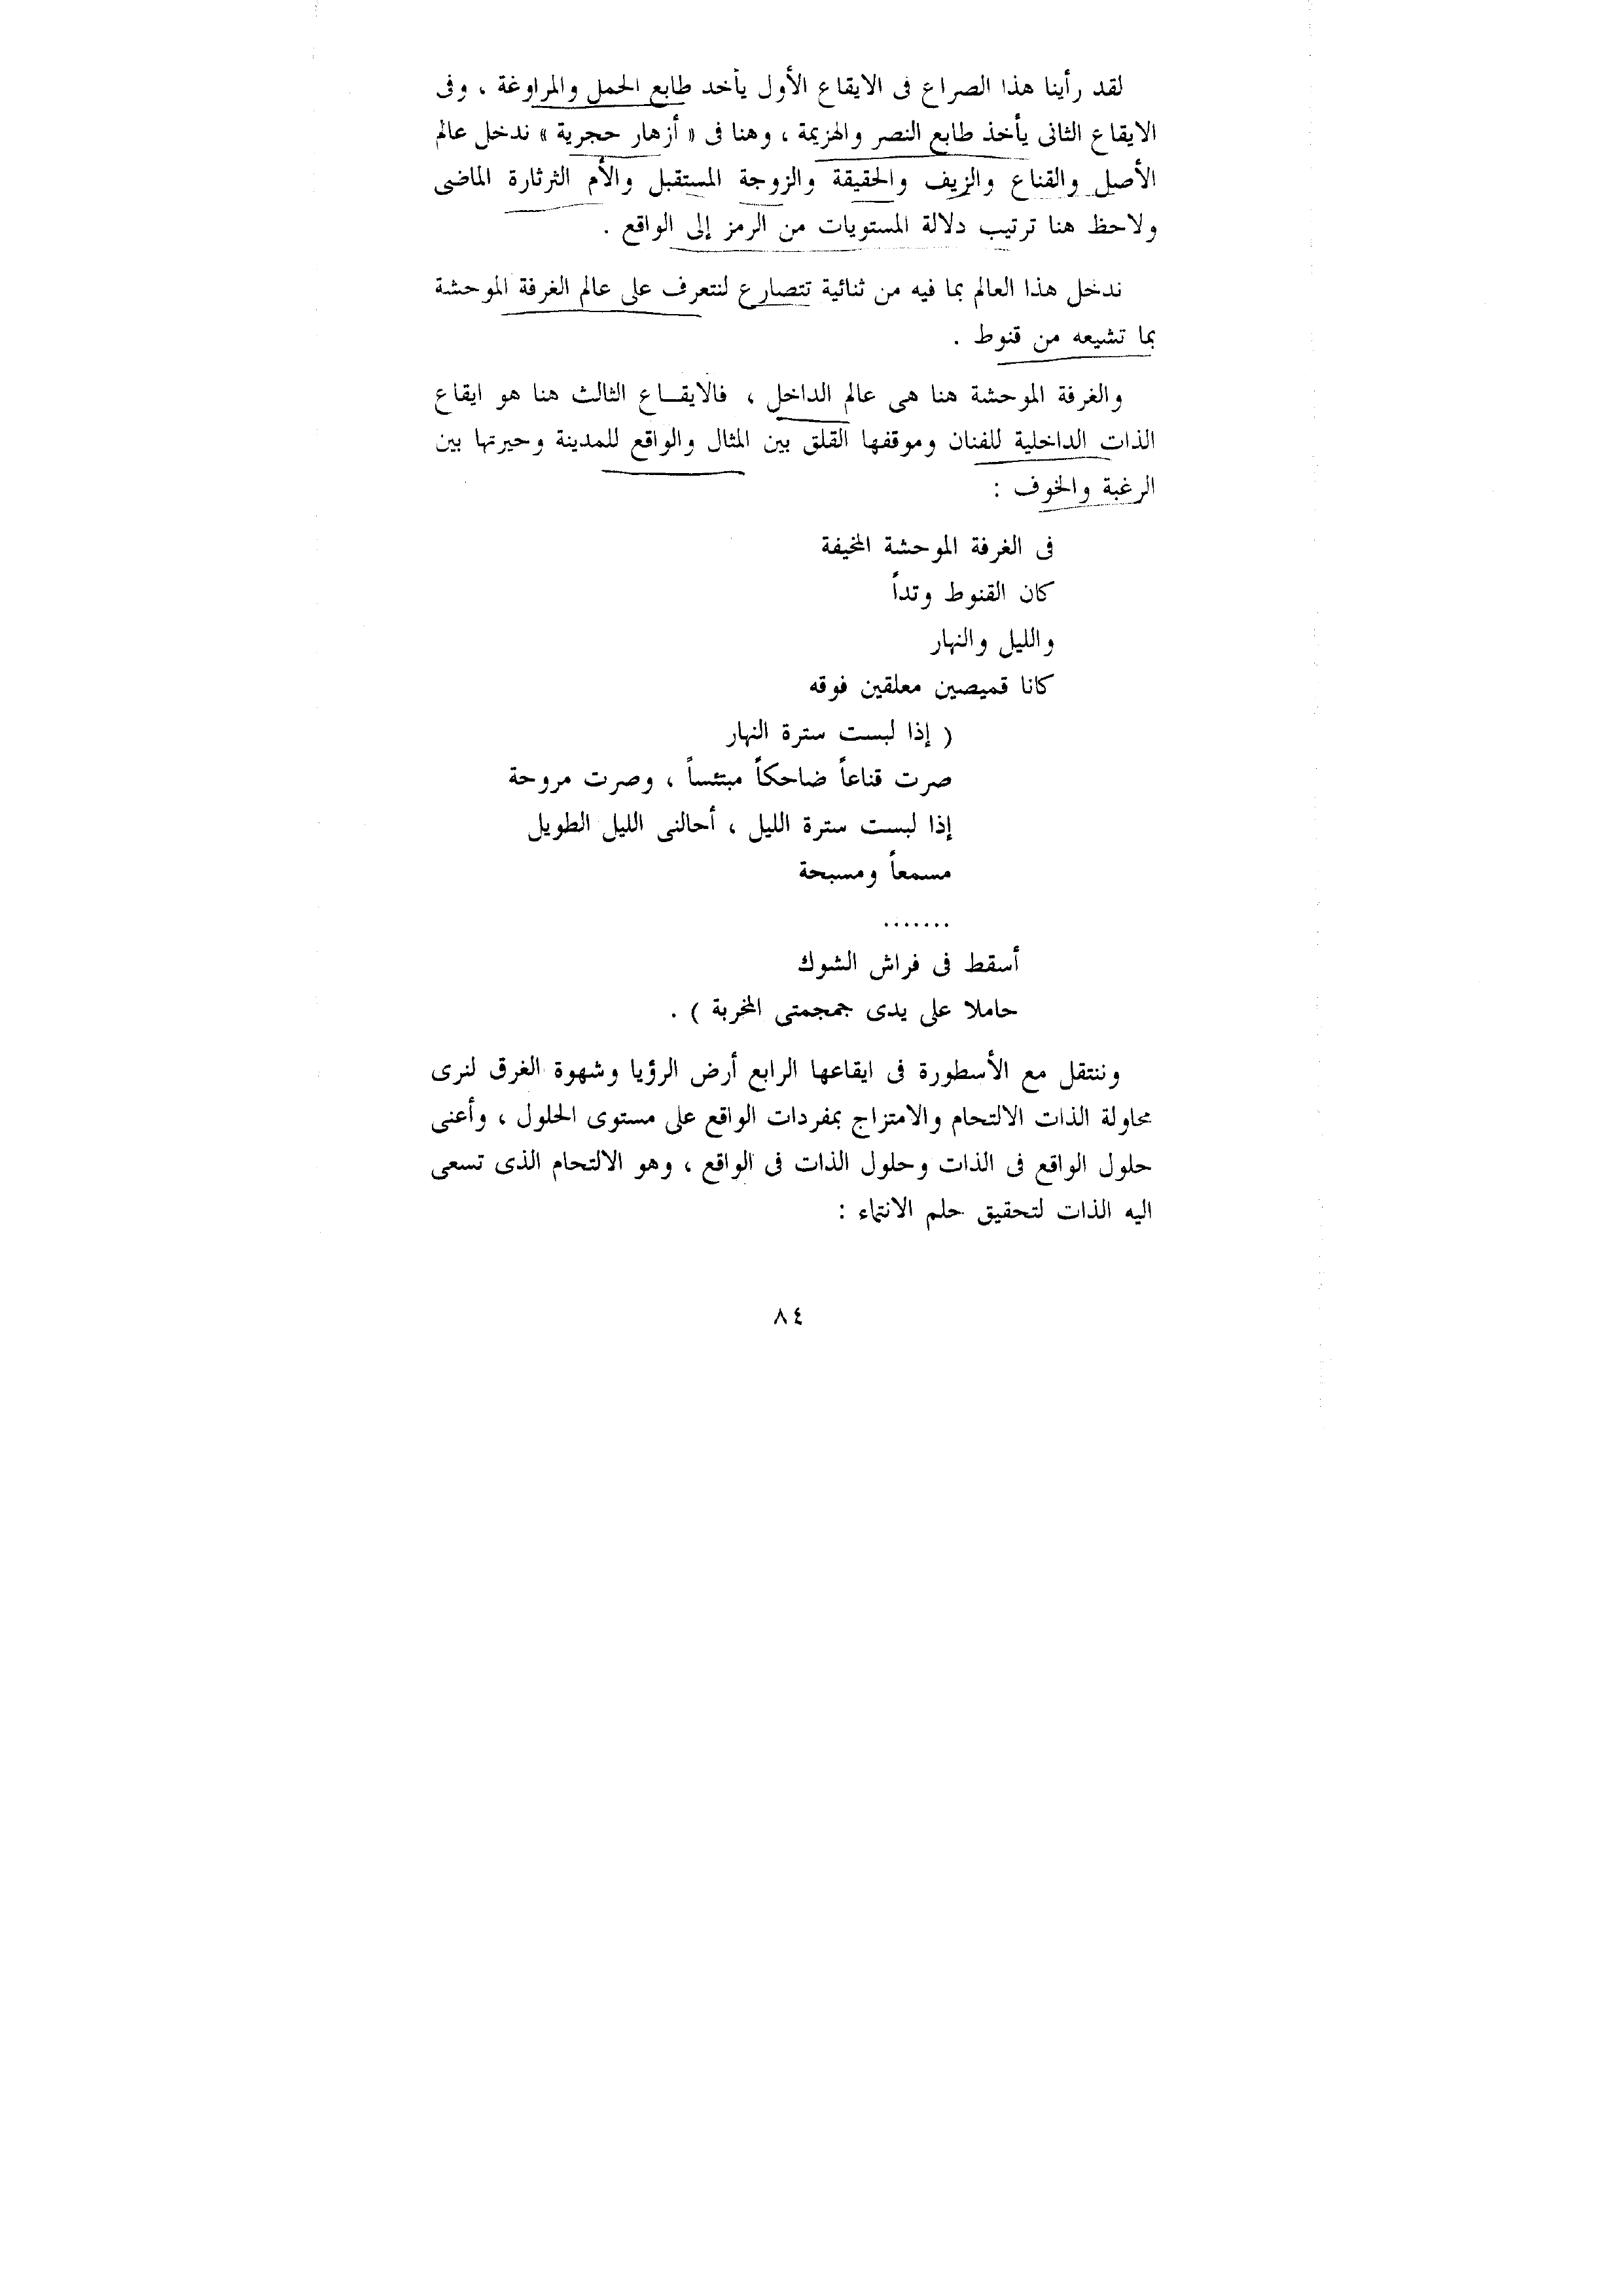 لقد رأينا هذا الصراع فى الايقاع الأول يأخد طابع الحمل والمراوغة ، وفى
الايقاع الثانى يأخذ طابع النصر والهزيمة ، وهنا فى « أزهار حجرية » ندخل عالم
الأصل والقناع والزيف والحقيقة والزوجة المستقبل والأم الثرثارة الماضى
ولاحظ هنا ترتيب دلالة المستويات من الرمز إلى الواقع .
ندخل هذا العالم بما فيه من ثنائية تتصارع لنتعرف على عالم الغرفة الموحشة
بما تشيعه من قنوط .
والغرفة الموحشة هنا هى عالم الداخل ، فالايقـــاع الثالث هنا هو ايقاع
الذات الداخلية للفنان وموقفها القلق بين المثال والواقع للمدينة وحيرتها بين
الرغبة والخوف :
فى الغرفة الموحشة المخيفة
كان القنوط وتداً
والليل والنهار
كانا قميصين معلقين فوقه
( إذا لبست سترة النهار
صرت قناعاً ضاحكاً مبتئساً ، وصرت مروحة
إذا لبست سترة الليل ، أحالنى الليل الطويل
مسمعاً ومسبحة
.......
أسقط فى فراش الشوك
حاملا على يدى جمجمتى المخربة ) .
وننتقل مع الأسطورة فى ايقاعها الرابع أرض الرؤيا وشهوة الغرق لنرى
محاولة الذات الالتحام والامتزاج بمفردات الواقع على مستوى الحلول ، وأعنى
حلول الواقع فى الذات وحلول الذات فى الواقع ، وهو الالتحام الذى تسعى
اليه الذات لتحقيق حلم الانتماء :
٨٤